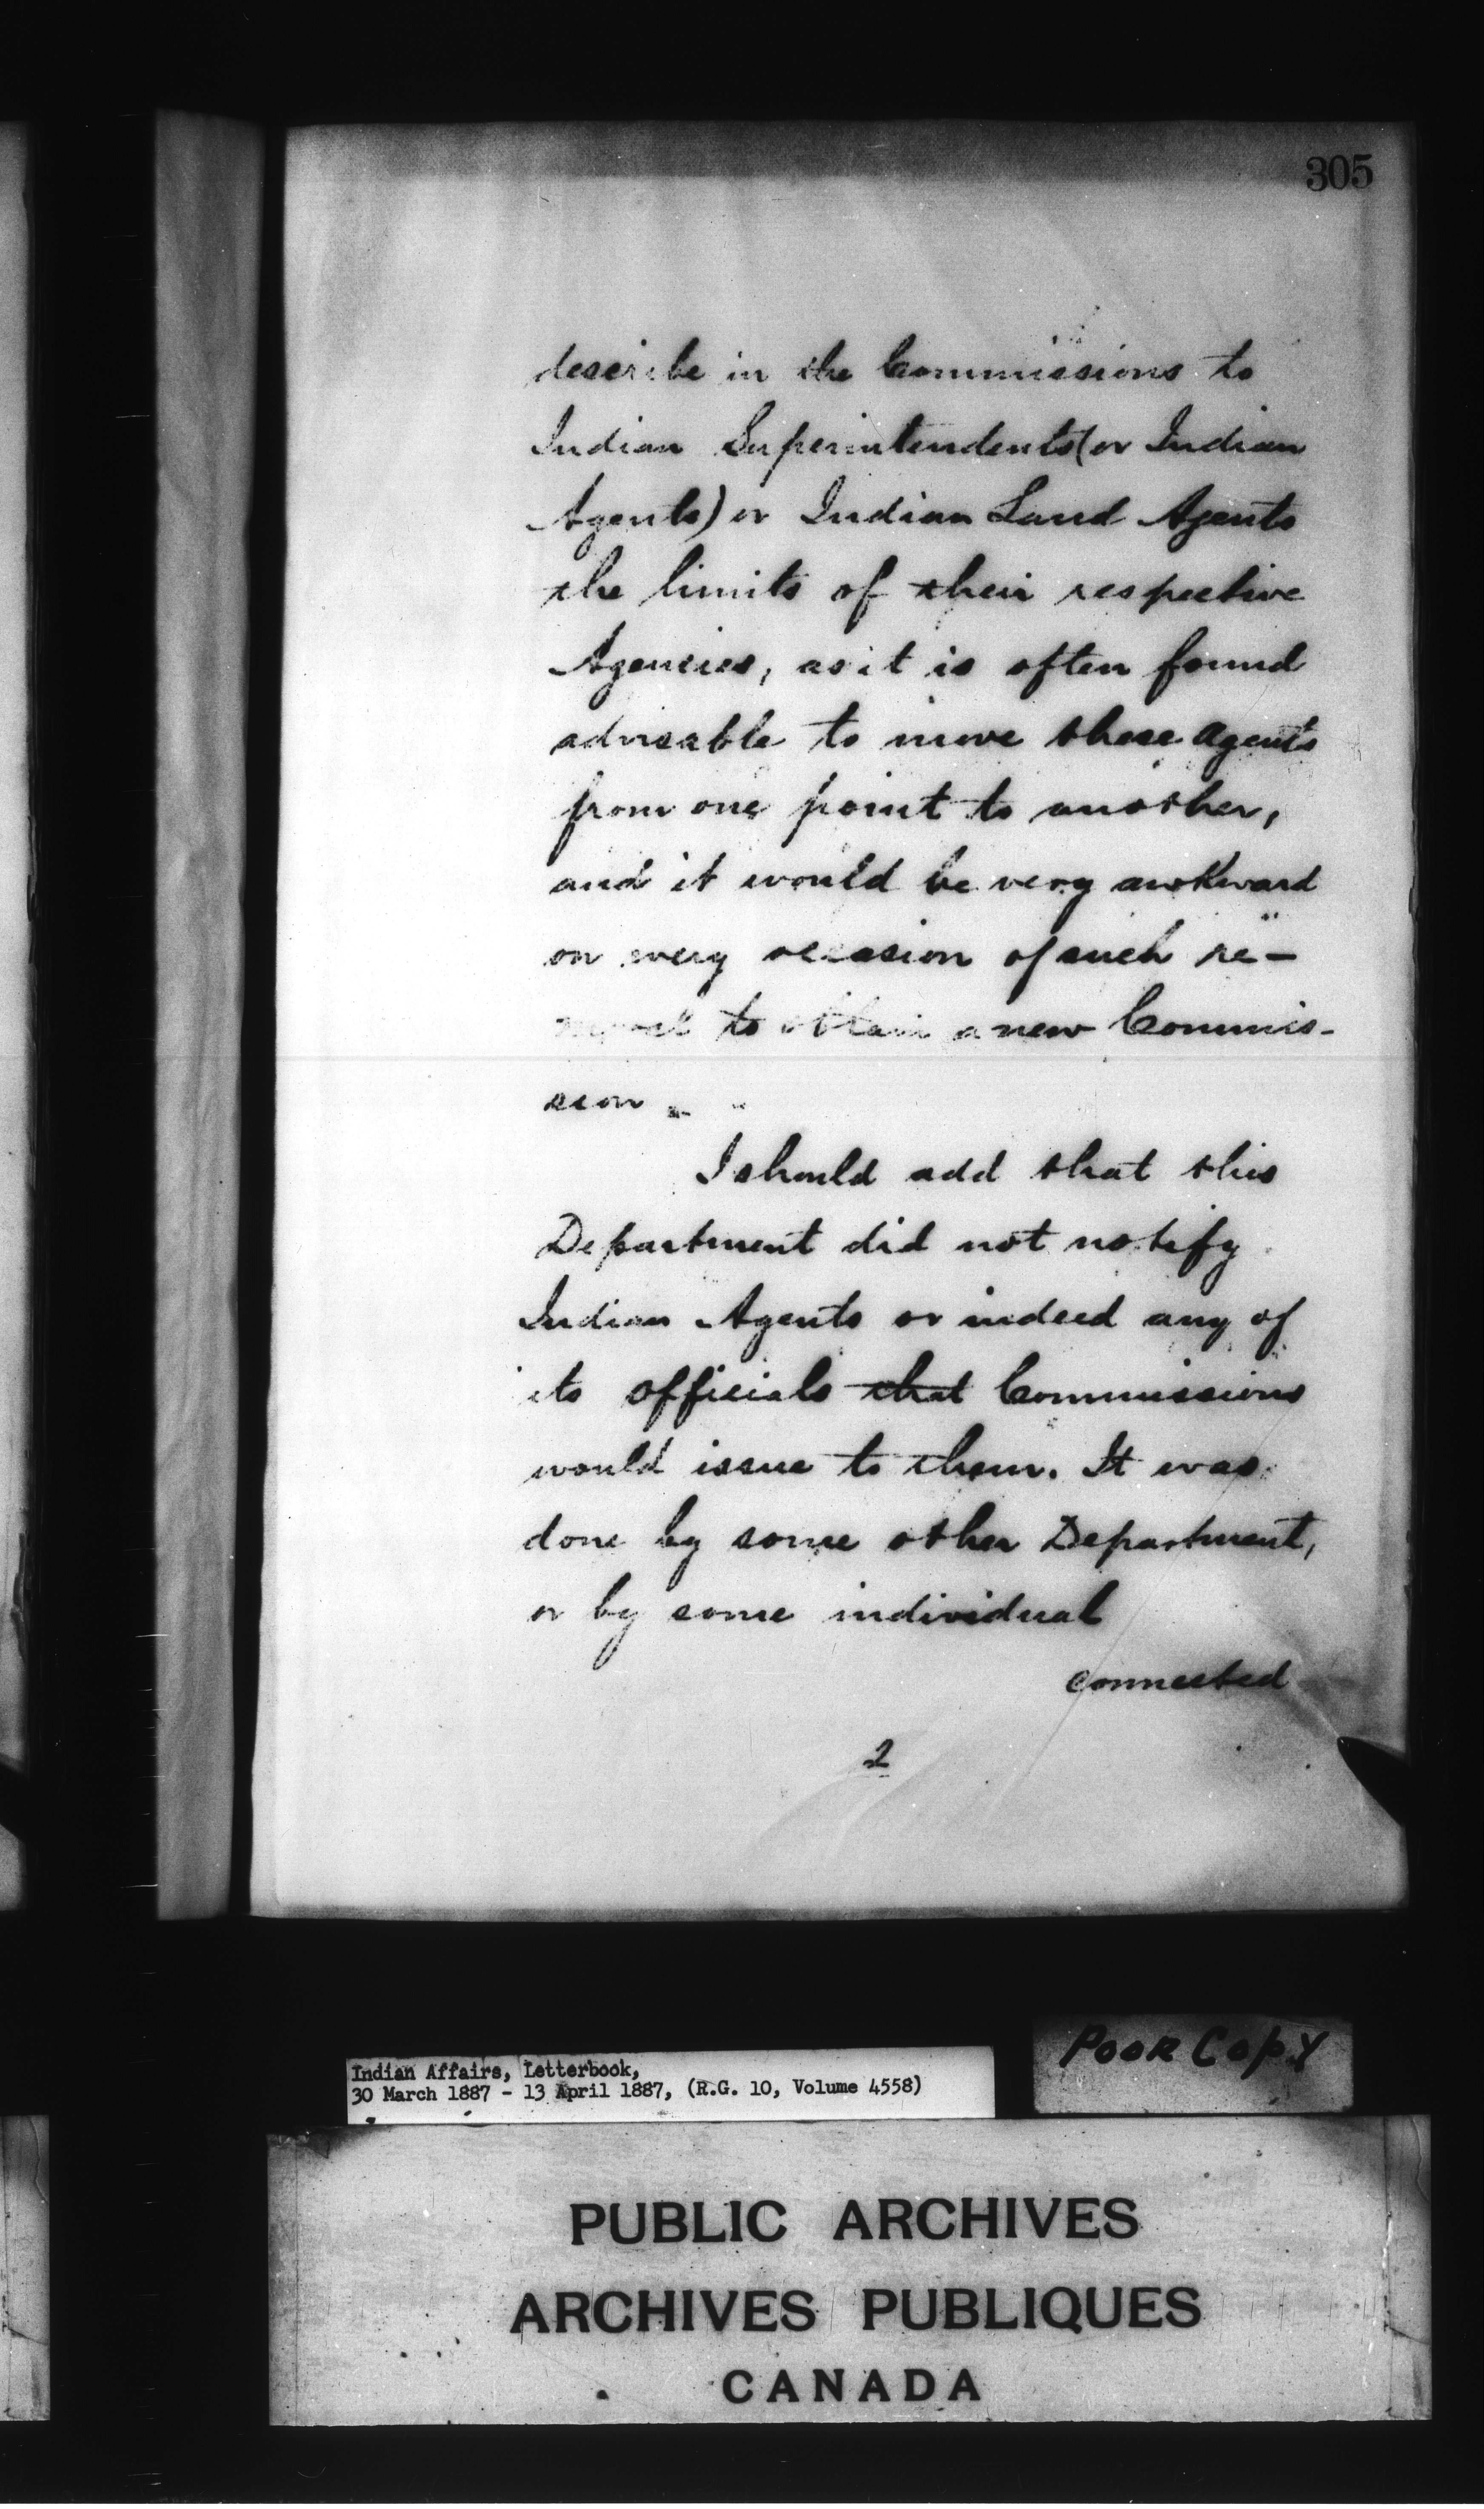 305
describe in the Commissions to
Indian Superintendents (or Indian
Agents) or Indian Land Agents
the limits of their respective
Agencies, as it is often found
advisable to move these agents
from one point to another,
and it would be very awkward
on every occasion of such re-
moval to obtain a new Commis-
sion.
I should add that this
Department did not notify
Indian Agents or indeed any of
its officials that Commissions
would issue to them. It was
done by some other Department,
or by some individual
connected
2
Poor Copy
Indian Affairs, Letterbook,
30 March 1887 - 13 April 1887, (R.G. 10, Volume 4558)
PUBLIC ARCHIVES
ARCHIVES PUBLIQUES
CANADA